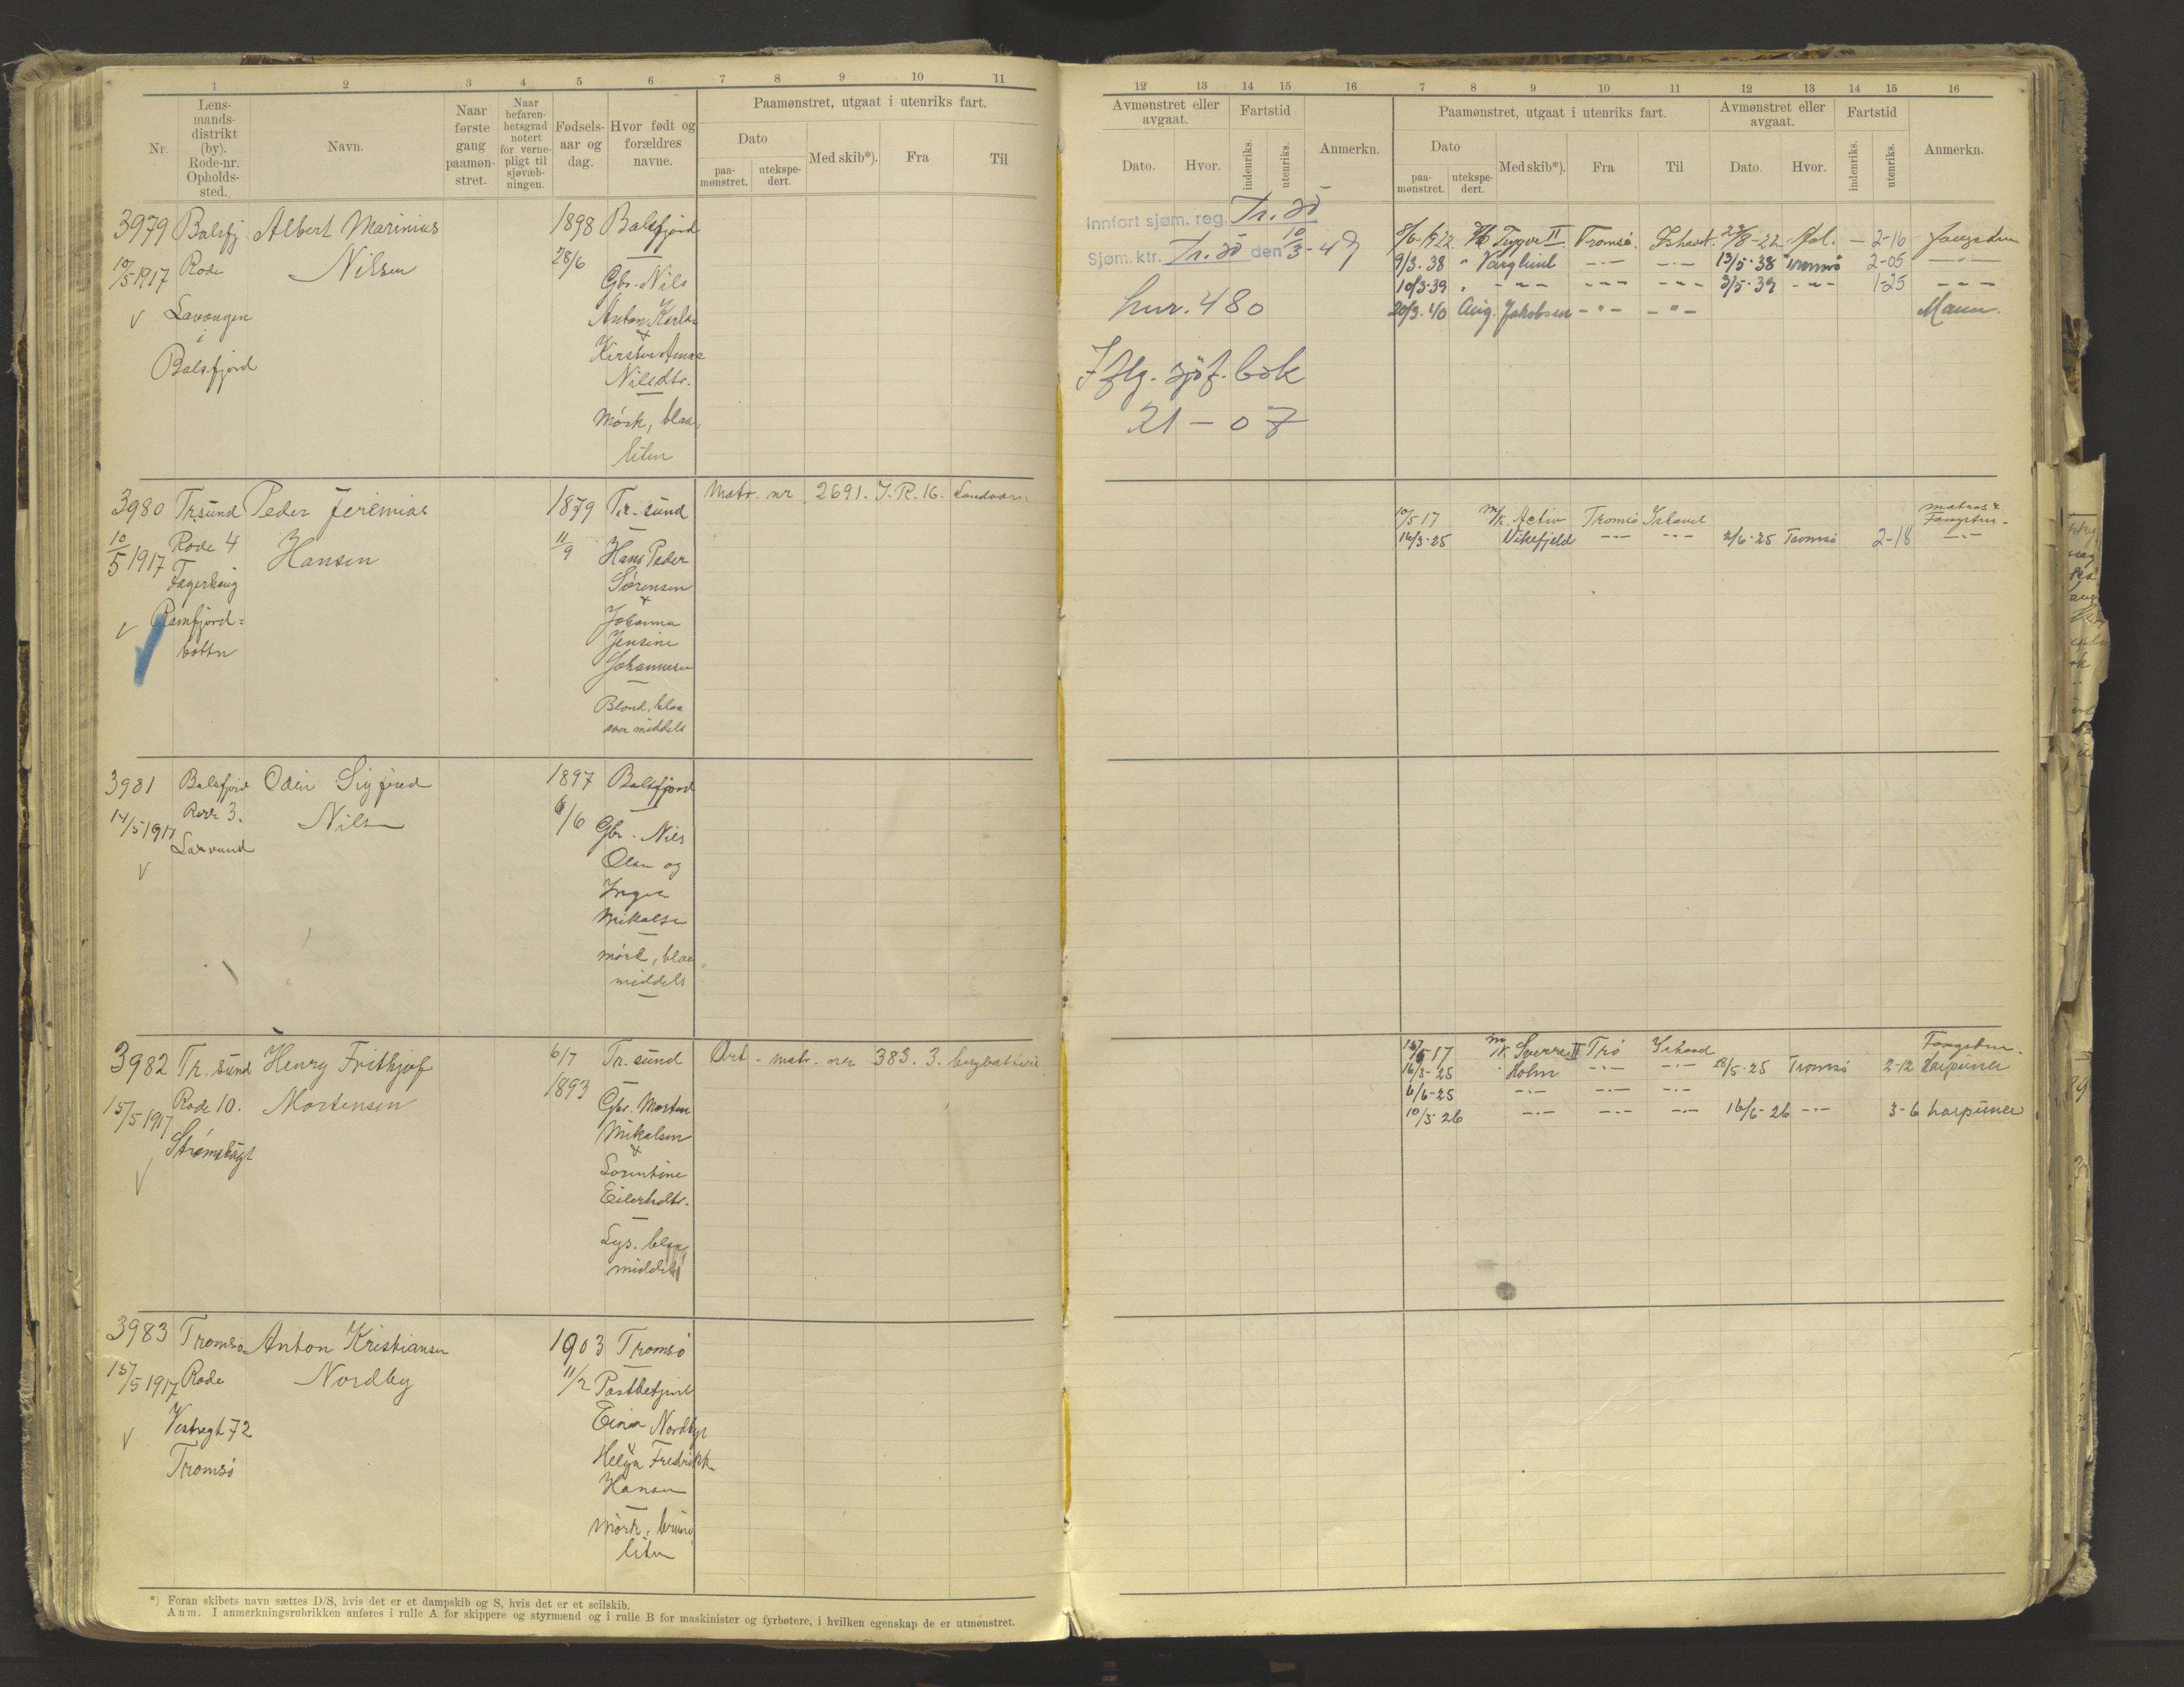 1 2 3 4 5 6 7 8 9 10 11
Nr. Lensmandsdistrikt (by). Rode-nr. Opholdssted. Navn. Naar første gang paamønstret. Naar befarenhetsgrad notert for vernepligt til sjøvæbningen. Fødselsaar og dag. Hvor født og forældres navne. Paamønstret, utgaat i utenriks fart.
Dato paamønstret. utekspedert. Med skib*). Fra Til
3979 Balsfj. Albert Marinius 1898 Balsfjord
10/5 1917 Rode Nilsen 28/6
Gbr. Nils
Lavangen Anton Karlsen
i &
Balsfjord
Nilsdtr.
Mörk, blaa,
liten
3980 Tr.sund Peder Jeremias 1879 Tr. sund Matr. nr 2691. I. R. 16. Landværn
10/5 1917 Rode 4 Hansen 11/9 Hans Peder
Fagerhaug Sørensen
&
Ramfjord= Johanna
botn Jensine
Johannesen
Blond, blaa
over middels
3981 Balsfjord Odin Sigfred 1897 Balsfjord
14/5 1917 Rode 3. Nilsen 6/6 Gbr. Nils
Laxvand Olsen og
Inga
Mikalsen
mörk, blaa
middels
3982 Tr. sund Henry Frithjof 6/7 Tr. sund Art - matr. nr 383. 3. bergbatteri
15/5 1917 Rode 10. Mortensen 1893 Gbr. Morten
Strømsbugt Mikalsen
&
Lorentine
Eilertsdtr.
Lys. blaa,
middels
3983 Tromsø Anton Kristiansen 1903 Tromsö
15/5 1917 Rode Nordby 11/2 Postbetjent
Vestregt 72 Einar Nordby
&
Tromsö Helga Fredrikke
Hansen
Mörk, brune,
liten
*) Foran skibets navn sættes D/S, hvis det er et dampskib og S, hvis det er et seilskib.
Anm. I anmerkningsrubrikken anføres i rulle A for skippere og styrmænd og i rulle B for maskinister og fyrbøtere, i hvilken egenskap de er utmønstret.
12 13 14 15 16 7 8 9 10 11 12 13 14 15 16
Avmønstret eller avgaat. Fartstid Anmerkn. Paamønstret, utgaat i utenriks fart. Avmønstret eller avgaat. Fartstid Anmerkn.
Dato. Hvor. indenriks. utenriks. Dato paamønstret. utekspedert. Med skib*). Fra Til Dato. Hvor. indenriks. utenriks.
Innført sjøm. reg. Tr. sö
Sjøm. ktr. Tr. sö den 10/3-49
hnr. 480
Iflg. sjöf. bok
21 - 07
8/6-1922 Trygve II. Tromsø. Ishavet. 22/8-22 - 2-16 fangstm
9/3-38 " Varglimt -"- -"- 13/5-38 Tromsø 2-05 -"-
10/3-39 " -"- -"- -"- 3/5-39 -"- 1-25 -"-
20/3.40 Aug. Jakobsen -"- -"- Mann.
10/5 17 M/K. Activ Tromsø Ishavet matros & Fangstm.
16/3-25 Vikefjeld -"- -"- 2/6-25 Tromsø 2-18 -"-
15/5 17 M/K. Sverre II Trø Ishavet Fangstm.
16/3-25 " Holm -"- -"- 28/5-25 Tromsø 2-12 Harpuner
6/6-25 -"- -"- -"-
10/3-26 -"- -"- -"- 16/6-26 -"- 3-6 harpuner